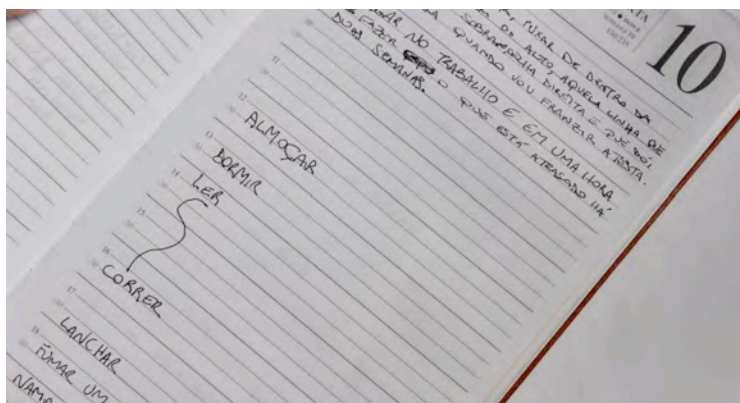 10
, PUXAR DE DENTRO DA
DO ALTO, AQUELA LINHA DE
SOBRANCELHA DIREITA E QUE DÓI,
QUANDO VOU FRANZIR A TESTA.
GAR NO TRABALHO E EM UMA HORA
FAZER O QUE ESTÁ ATRASADO HÁ
DUAS SEMANAS.
11
12
ALMOÇAR
13
DORMIR
14
LER
15
16
CORRER
17
LANCHAR
18
FUMAR UM
NAMO